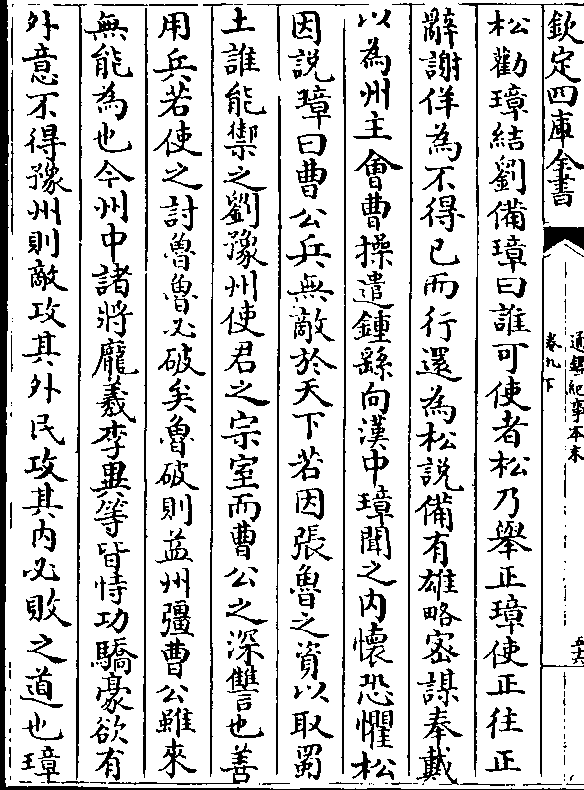 欽定四庫全書
通鑑紀事本末
卷九下
松勸璋結劉備璋曰誰可使者松乃舉正璋使正往正
辭謝佯為不得已而行還為松說備有雄略密謀奉戴
以為州主會曹操遣鍾繇向漢中璋聞之内懷恐懼松
因說璋曰曹公兵無敵於天下若因張魯之資以取蜀
土誰能禦之劉豫州使君之宗室而曹公之深讐也善
用兵若使之討魯魯必破矣魯破則益州彊曹公雖來
無能為也今州中諸將龐羲李異等皆恃功驕豪欲有
外意不得豫州則敵攻其外民攻其内必敗之道也璋